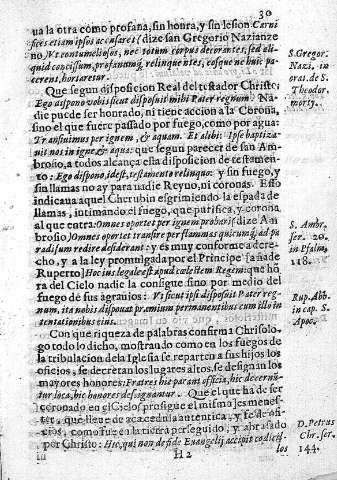 30
ua la otra como profana, sin honra, y sin lesion Carni
fices etiam ipsos accusares (dize san Gregorio Nazianze
no) Vt contumeliosos, nec totum corpus decorantes, sed ali-
quid concissum, profanum, relinquentes, eosque ne huic pa-
cerent, hortaretur.
Que segun disposicion Real del testador Christo:
Ego dispono vobis sicut disposuit mihi Pater regnum. Na-
die puede ser honrado, ni tiene accion a la Corona,
sino el que fuere passado por fuego, como por agua:
Transiuimus per ignem, & aquam. Et alibi: Ipse baptiza-
uit nos in igne & aqua: que segun parecer de san Am-
brosio, a todos alcança esta disposicion de testamen-
to: Ego dispono, id est, testamento relinquo: y sin fuego, y
sin llamas no ay para nadie Reyno, ni coronas. Esto
indicaua aquel Cherubin esgrimiendo la espada de
llamas, intimando el fuego, que purifica, y corona
al que entra: Omnes oportet per ignem probari (dize Am-
brosio) Omnes oportet transire per flammas quicumq; ad pa
radisum redire desiderant: y es muy conforme a dere-
cho, y a la ley promulgada por el Principe (añade
Ruperto) Hoc ius legale est apud cælestem Regem: que hõ
ra del Cielo nadie la consigue sino por medio del
fuego de sus agrauios: Vt sicut ipsi disposuit Pater reg-
num, ita nobis disponat præmium permanentibus cum illo in
tentationibus eius.
Con que riqueza de palabras confirma Chrisolo-
go todo lo dicho, mostrado como en los fuegos de
la tribulacion de la Iglesia se reparten a sus hijos los
oficios, se decretan los lugares altos, se designan los
mayores honores: Fratres hic parant officia, hic decernũ-
tur loca, hic honores designantur. Que el que ha de ser
coronado en el Cielo (prosigue el mismo) es menes-
ter, que lleue de aca cedula autentica, y fe de ofi-
cios, como fue en la tierra perseguido, y abrasado
por Christo: Hic, qui non de fide Euangelij accipit codicil-
H2
los
S. Gregor.
Nazi. in
orat. de S.
Theodor.
morty.
S. Ambr.
ser. 20.
in Psalm.
118.
Rup. Abb.
in cap. S.
Apoc.
D. Petrus
Chr. ser.
144.